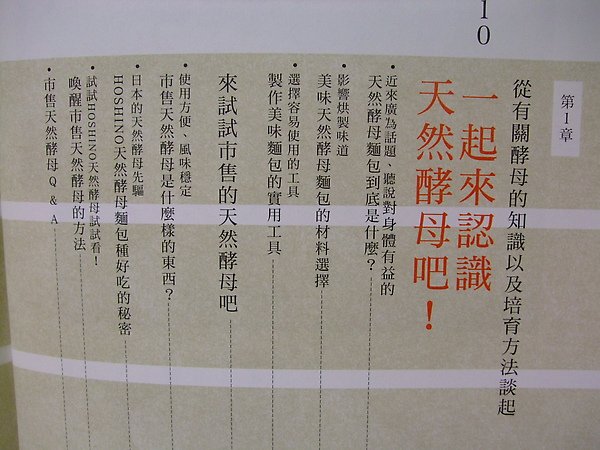 10
第1章
從有關酵母的知識以及培育方法談起
一起來認識
天然酵母吧！
•近來廣為話題、聽說對身體有益的
天然酵母麵包到底是什麼？
•影響烘製味道
美味天然酵母麵包的材料選擇
•選擇容易使用的工具
製作美味麵包的實用工具
來試試市售的天然酵母吧
•使用方便、風味穩定
市售天然酵母是什麼樣的東西？
•日本的天然酵母先驅
HOSHINO天然酵母麵包種好吃的秘密
•試試HOSHINO天然酵母試試看！
喚醒市售天然酵母的方法
•市售天然酵母Q & A